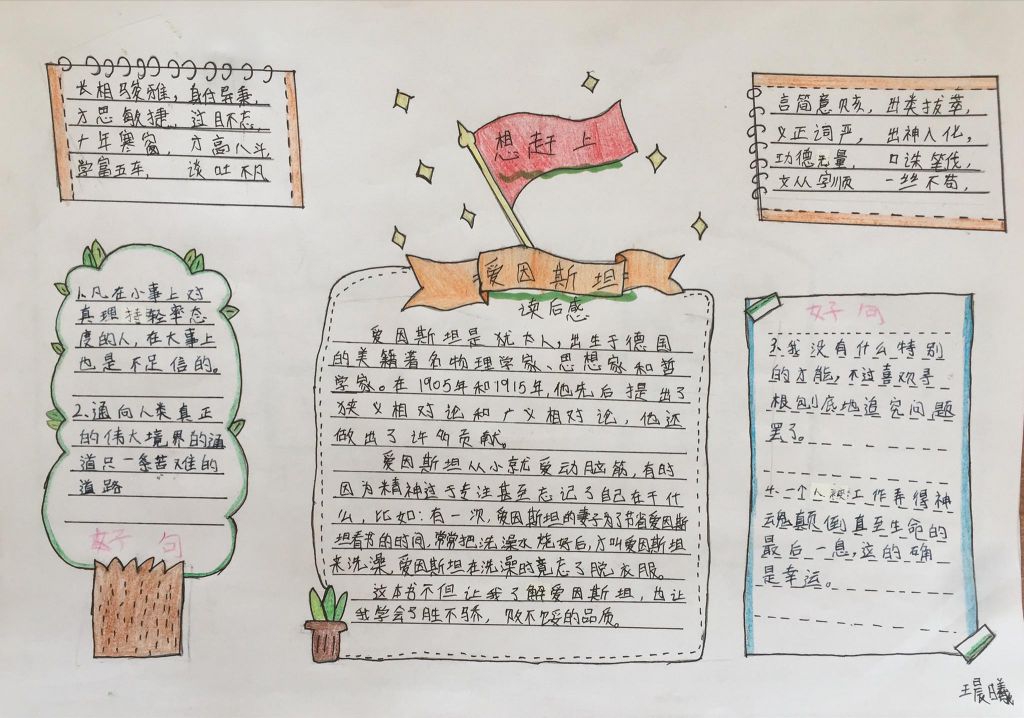 长相骏雅，身付异秉，
才思敏捷，过目不忘，
十年寒窗，才高八斗，
学富五车，谈吐不凡
想赶上
言简意赅，出类拔萃，
义正词严，出神入化，
功德无量，口诛笔伐，
文从字顺 一丝不苟，
爱因斯坦
读后感
爱因斯坦是犹太人，出生于德国
的美籍著名物理学家、思想家和哲
学家。在1905年和1915年，他先后提出了
狭义相对论和广义相对论，他还
做出了许多贡献。
爱因斯坦从小就爱动脑筋，有时
因为精神过于专注甚至忘记了自己在干什
么，比如：有一次，爱因斯坦的妻子为了节省爱因斯
坦看书的时间，常常把洗澡水烧好后，才叫爱因斯坦
来洗澡，爱因斯坦在洗澡时竟忘了脱衣服。
这本书不但让我了解爱因斯坦，也让
我学会了胜不骄，败不馁的品质。
1.凡在小事上对
真理持轻率态
度的人，在大事上
也是不足信的。
2.通向人类真正
的伟大境界的通
道只一条苦难的
道路
好句
好句
3.我没有什么特别
的才能，不过喜欢寻
根刨底地追究问题
罢了。
4.一个人被工作弄得神
魂颠倒直至生命的
最后一息，这的确
是幸运。
王晨曦